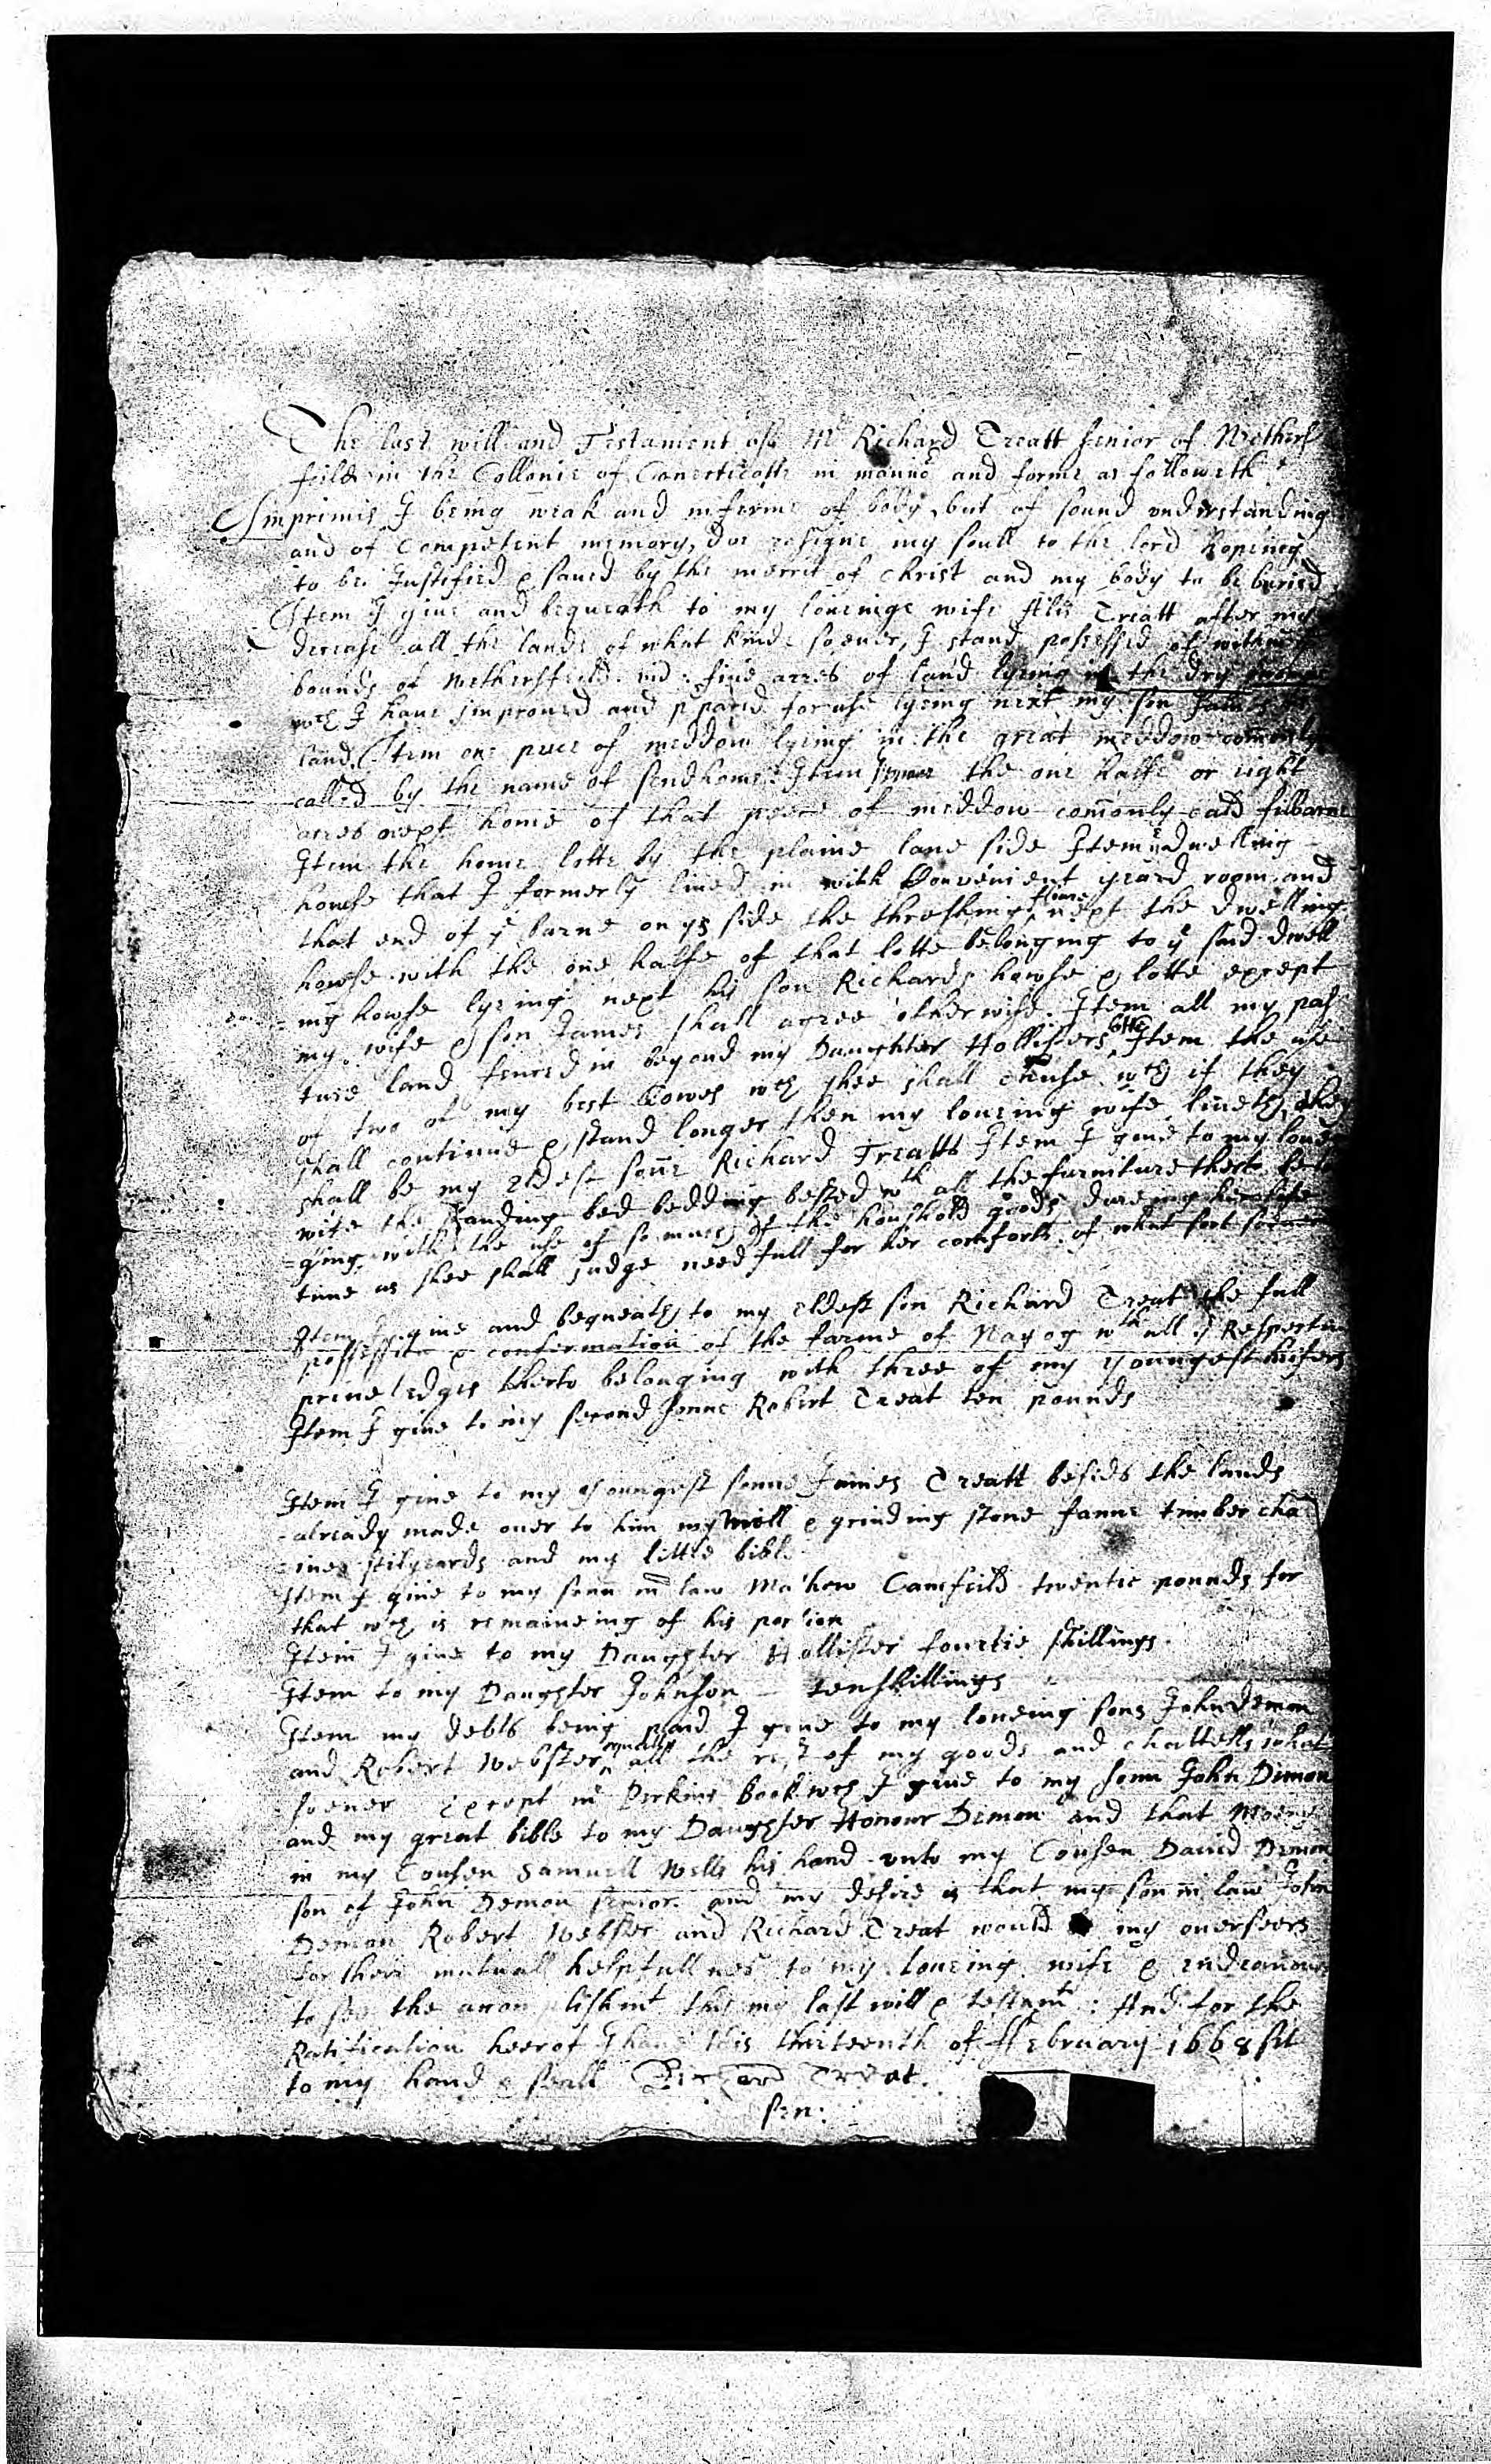 The last will and Testament off Mr Richard Treatt senior of Wethers
feild in the Collonie of Conecticotte in manne and forme as followeth
Imprimis I being weak and inferme of body, but of sound vnderstanding
and of Competent memory, doe resigne my soull to the lord hopeing
to be Justefied & saued by the merrit of Christ and my body to be buried
Item I giue and bequeath to my loueinge wife Alis Treatt after my
decease all the lands of what kinde soeuer, I stand possessed of within ye
bounds of Wethersfeild vid: fiue acres of land lyeing in the dry swampe
wch I haue jmproued and ppared for use lyeing next my son James his
land Item one peece of meddow lyeing in the great meddow comonly
called by the name of sendhome: Item the one halfe or eight
acres next home of that peece of meddow comonly caled filbarne
Item the home lotte by the plaine lane side Item ye dwelling
howse that I formerly liued in with Convenient yeard room and
that end of ye barne on ys side the threshing floure next the dwelling
howse with the one halfe of that lotte belonging to ye said dwell
ing howse lyeing next his son Richards howse & lotte except
my wife & son James shall agree otherwise. Item all my pas
ture land fenced in beyond my Daughter Hollisters lotte Item the use
of two of my best Cowes wch shee shall chuse wch if they
shall continue & stand longer then my loueing wife liueth they
shall be my eldest sonne Richard Treatts Item I giue to my loue
wife the standing bed bedding bested wth all the furniture therto belo
=ging with the use of so much of the houshold goods dureing hir life
time as shee shall judge needfull for her comforts of what sort soeuer
Item I giue and bequeath to my eldest son Richard Treat the full
possession & confermation of the farme of Nayog wth all ye Respectiue
priueledges therto belonging with three of my youngest heifers
Item I giue to my second sonne Robert Treat ten pounds
Item I giue to my youngest sonne James Treatt besids the lands
already made ouer to him my mill & grinding stone fanne timber cha
=ines stilyeards and my little bible
Item I giue to my sonn in law Mathew Camfeild twentie pounds for
that wch is remaineing of his portion
Item I giue to my Daughter Hollister fourtie shillings.
Item to my Daughter Johnson — ten shillings
Item my debts being paid I giue to my loueing sons John Demon
and Robert Webster equally all the rest of my goods and chattells what
soeuer except mr Perkins book wch I giue to my sonn John Dimon
and my great bible to my Daughter Honour Demon and that money
in my Cousen Samuell Wells his hand vnto my Cousen Dauid Demon
son of John Demon senior. and my desire is that my son in law John
Demon Robert Webster and Richard Treat would be my overseers
for their mutuall helpfullnes to my loueing wife & endeauour
to see the accomplishmt this my last will & testamt: And for the
Ratification heerof I haue this thirteenth of February 1668 set
to my hand & seall Richard Treat
sen: